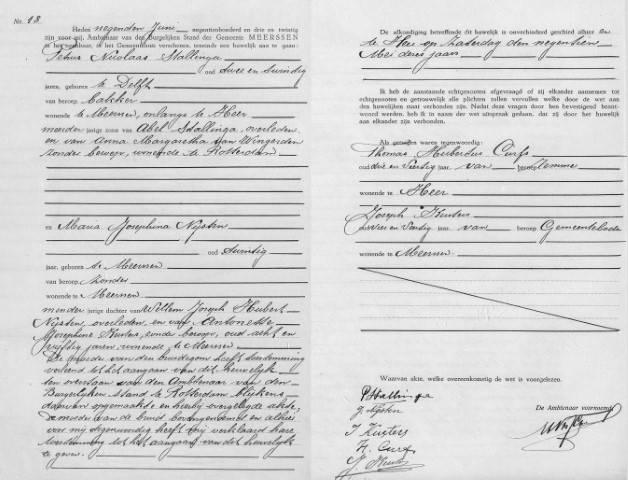 No. 18.
Heden negenden Juni negentienhonderd en drie en twintig
zijn voor mij, Ambtenaar van den Burgelijken Stand der Gemeente MEERSSEN
in het openbaar, in het Gemeentehuis verschenen, teneinde een huwelijk aan te gaan:
Petrus Nicolaas Stallinga
oud twee en twintig
jaren, geboren te Delft
van beroep bakker
wonende te Meerssen, onlangs te Heer
minder jarige zoon van Abel Stallinga, overleden
en van Anna Margaretha van Wingerden
zonder beroep, wonende te Rotterdam
en Maria Josephina Nijsten
oud twintig
jaar, geboren te Meerssen
van beroep zonder
wonende te Meerssen
minder jarige dochter van Willem Joseph Hubert
Nijsten, overleden en van Antonette
Josephine Kusters, zonder beroep, oud acht en
vijftig jaren, wonende te Meerssen
De moeder van den bruidegom heeft toestemming
verleend tot het aangaan van dit huwelijk
ten overstaan van den Ambtenaar van den
Burgerlijken Stand te Rotterdam blijkens
daarvan opgemaakte en hierbij overgelegde akte,
de moeder van de bruid hier tegenwoordig en alhier
voor mij tegenwoordig heeft mij verklaard hare
toestemming tot het aangaan van dit huwelijk
te geven.
De afkondiging betreffende dit huwelijk is onverhinderd geschied alhier en
te Heer op Zaterdag den negentien
Mei dezes jaars
Ik heb de aanstaande echtgenooten afgevraagd of zij elkander aannemen tot
echtgenooten en getrouwelijk alle plichten zullen vervullen welke door de wet aan
den huwelijken staat verbonden zijn. Nadat deze vragen door hen bevestigend beant-
woord werden, heb ik in naam der wet uitspraak gedaan, dat zij door het huwelijk
aan elkander zijn verbonden.
Als getuigen waren tegenwoordig:
Thomas Hubertus Curfs
oud drie en veertig jaar, van beroep
wonende te Heer
Joseph Kusters
oud vier en veertig jaar, van beroep Gemeentebode
wonende te Meerssen
Waarvan akte, welke overeenkomstig de wet is voorgelezen.
P Stallinga
J. Nijsten
De Ambtenaar voornoemd,
J Kusters
H. Curfs